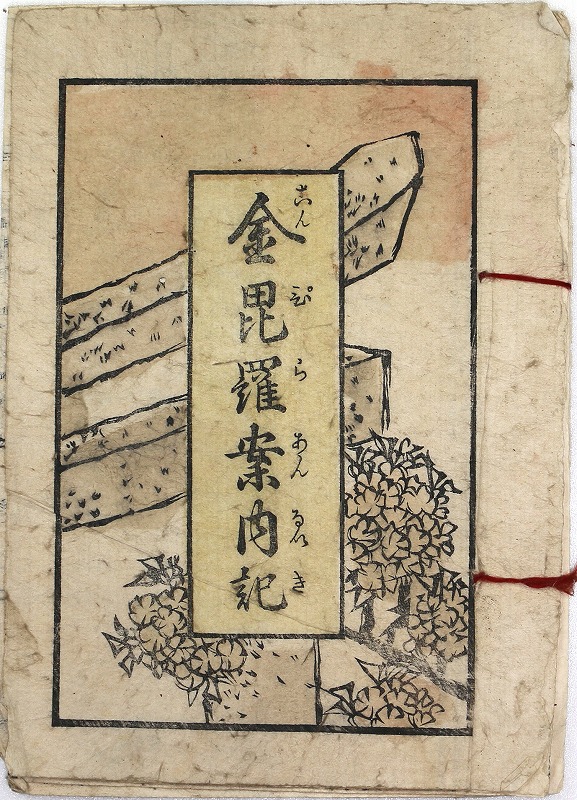 金毘羅案内記
こんぴらあんないき